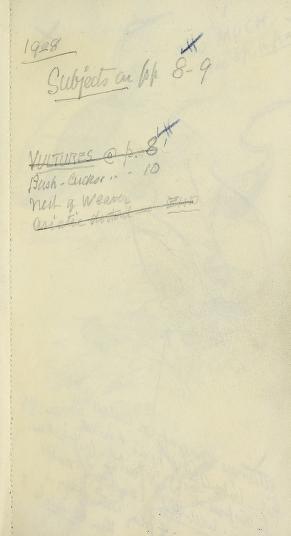 1928
Subjects on pp 8-9
VULTURES @ p. 8
Bush-Cuckoo " - 10
Nest of Weaver